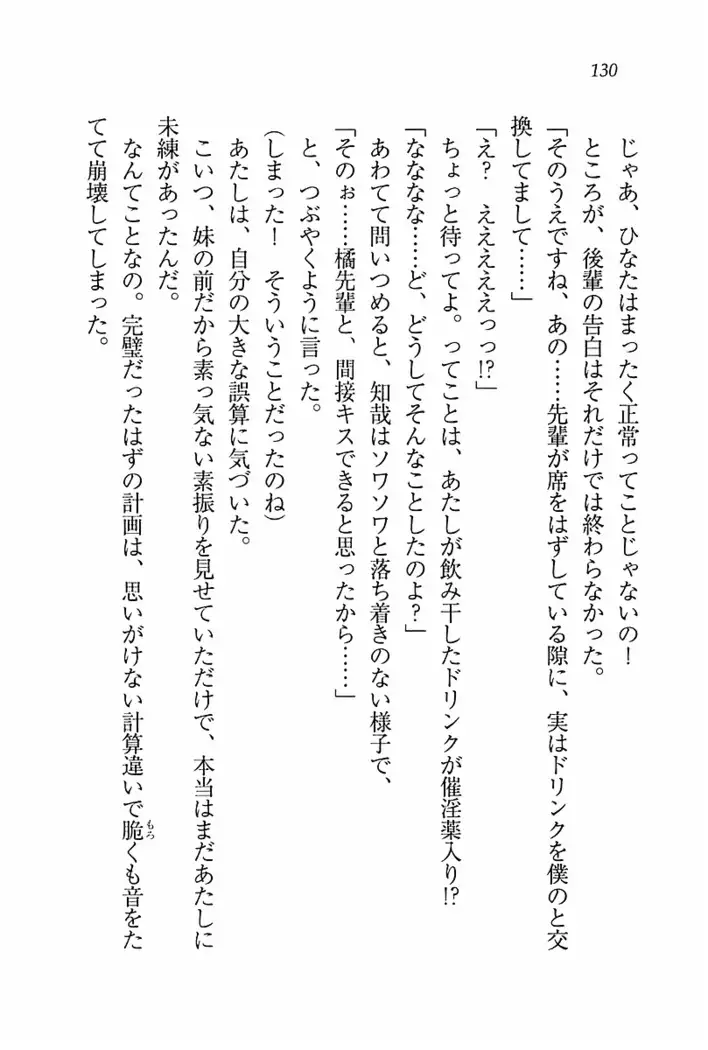 130
じゃあ、ひなたはまったく正常ってことじゃないの！
ところが、後輩の告白はそれだけでは終わらなかった。
「そのうえですね、あの……先輩が席をはずしている隙に、実はドリンクを僕のと交
換してまして……」
「え？　えええええっっ!?」
ちょっと待ってよ。ってことは、あたしが飲み干したドリンクが催淫薬入り!?
「なななな……ど、どうしてそんなことしたのよ？」
あわてて問いつめると、知哉はソワソワと落ち着きのない様子で、
「そのぉ……橘先輩と、間接キスできると思ったから……」
と、つぶやくように言った。
(しまった！　そういうことだったのね)
あたしは、自分の大きな誤算に気づいた。
こいつ、妹の前だから素っ気ない素振りを見せていただけで、本当はまだあたしに
未練があったんだ。
なんてことなの。完璧だったはずの計画は、思いがけない計算違いで脆くも音をた
もろ
てて崩壊してしまった。